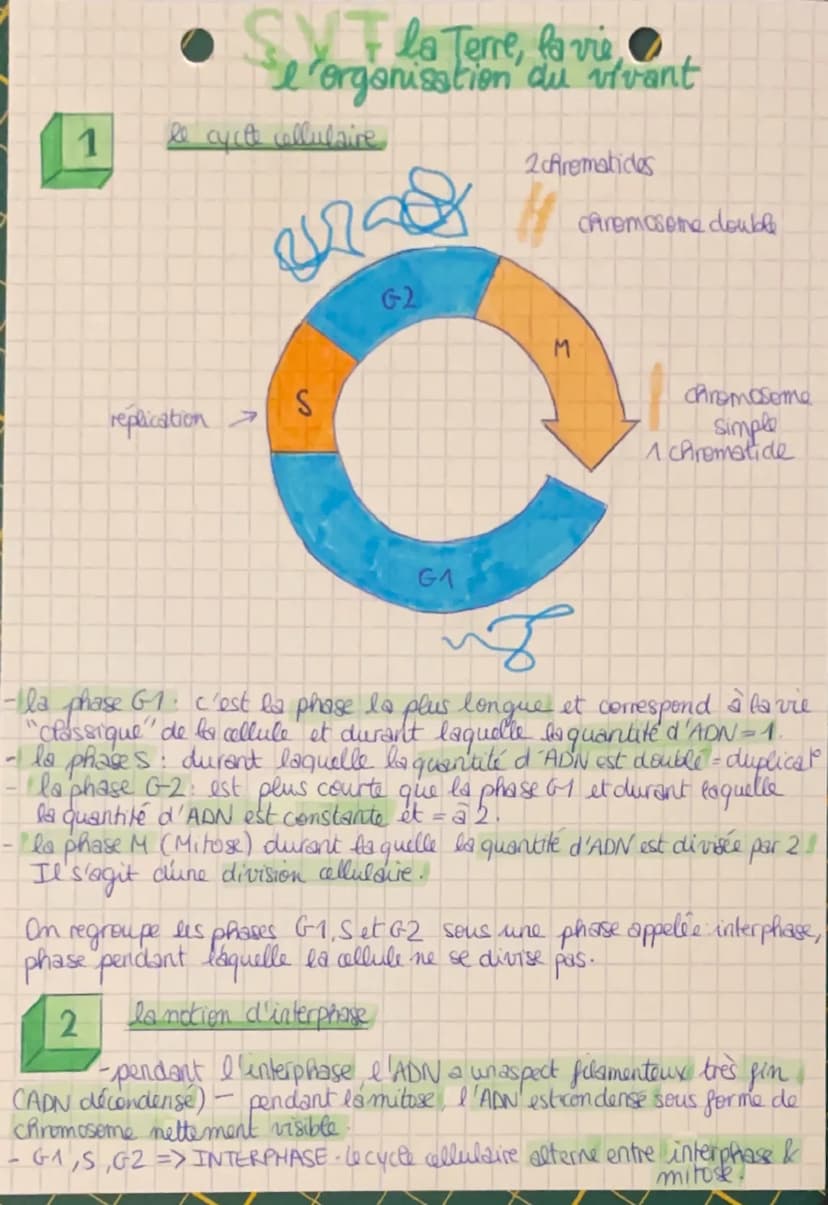 SVT la Terre, la vie
l'organisation du vivant
1 le cycle cellulaire
2 chromatides
chromosome double
G2
M
S
réplication →
chromosome
simple
1 chromatide
G1
- la phase G1 : c'est la phase la plus longue et correspond à la vie
"classique" de la cellule et durant laquelle la quantité d'ADN = 1.
- la phase S : durant laquelle la quantité d'ADN est double = duplicat°
- la phase G2 : est plus courte que la phase G1 et durant laquelle
la quantité d'ADN est constante et = à 2.
- la phase M (Mitose) durant laquelle la quantité d'ADN est divisée par 2!
Il s'agit d'une division cellulaire.
On regroupe les phases G1, S et G2 sous une phase appelée interphase,
phase pendant laquelle la cellule ne se divise pas.
2 la notion d'interphase
- pendant l'interphase, l'ADN a un aspect filamenteux très fin
(ADN décondensé) – pendant la mitose, l'ADN est condensé sous forme de
chromosome nettement visible.
- G1, S, G2 => INTERPHASE. le cycle cellulaire alterne entre interphase &
mitose.